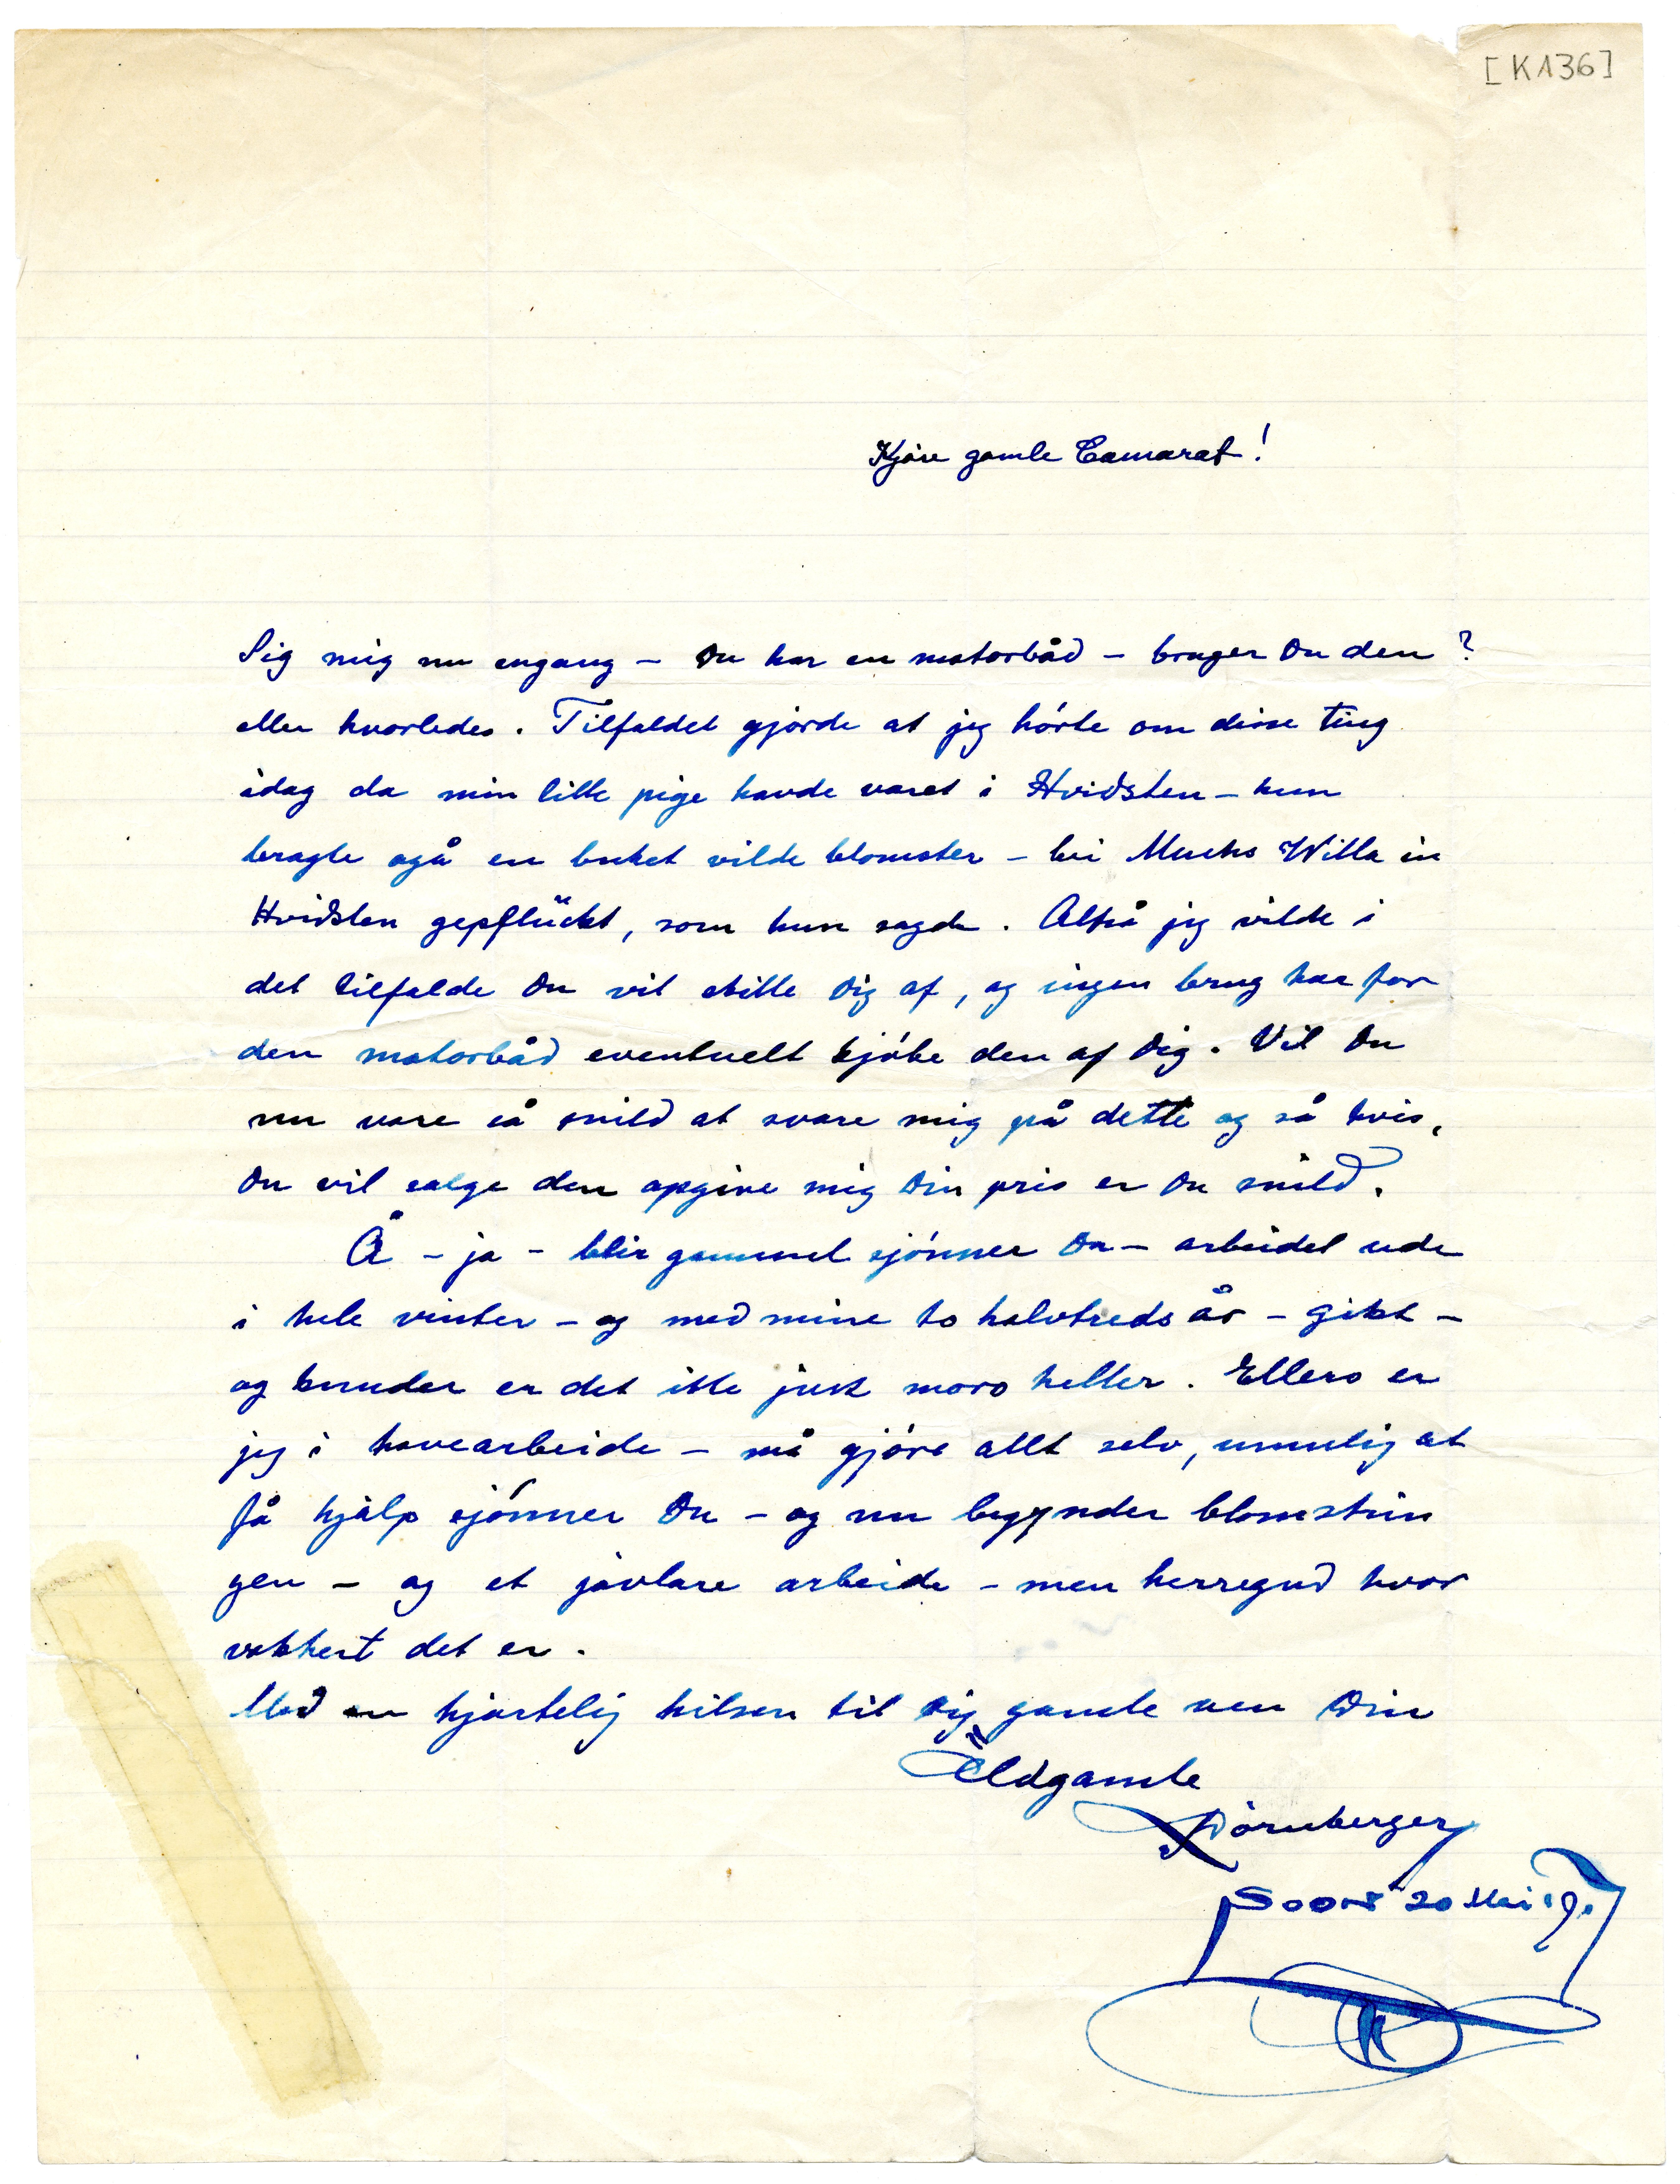 [K136]
Kjäre gamle Camarat!
Sig mig nu engang – Du har en motorbåd – bruger Du den?
eller hvorledes. Tilfaldet gjorde at jeg hörte om disse ting
idag da min lille pige havde varet i Hvidsten – hun
bragte også en buket vilde blomster – bei Munchs Willa in
Hvidsten gepflückt, som hun sagde. Altså jeg vilde i
det tilfalde Du vil skille Dig af, og ingen brug har for
den motorbåd eventuelt kjöbe den af Dig. Vil Du
nu vare så snild at svare mig på dette og så hvis,
Du vil salge den opgive mig Din pris er Du snild.
Å – ja – blir gammel sjönner Du – arbeidet ude
i hele vinter – og med mine to halvtreds år – gikt –
og hender er det ikke just moro heller. Ellers er
jeg i havearbeide – må gjöre allt selv, umulig at
få hjälp sjönner Du – og nu begynder blomstrin
gen – og et jävlare arbeide – men herregud hvor
vakkert det er.
Med en hjertelig hilsen til Dig gamle ven Din
Äldgamle
Dörnberger
Soon 20 Mai